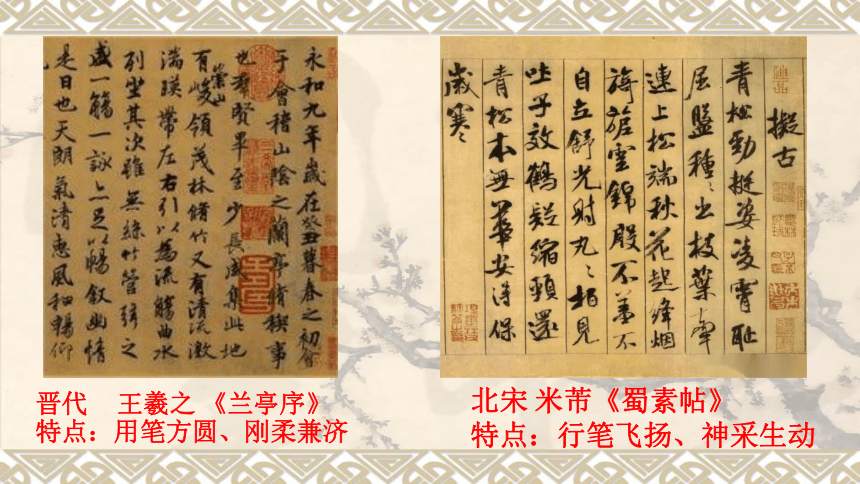 永和九年歲在癸丑暮春之初會
于會稽山陰之蘭亭脩稧事
也羣賢畢至少長咸集此地
有崇山峻領茂林脩竹又有清流激
湍暎帶左右引以為流觴曲水
列坐其次雖無絲竹管弦之
盛一觴一詠亦足以暢叙幽情
是日也天朗氣清惠風和暢仰
擬古
青松勁挺姿凌霄恥
屈盤種〻出枝葉牽
連上松端秋花起絳烟
旖旎雲錦殷不羞不
自立舒光射丸〻柏見
吐子效鶴疑縮頸還
青松本無華安得保
歲寒
晋代 王羲之 《兰亭序》
特点：用笔方圆、刚柔兼济
北宋 米芾《蜀素帖》
特点：行笔飞扬、神采生动